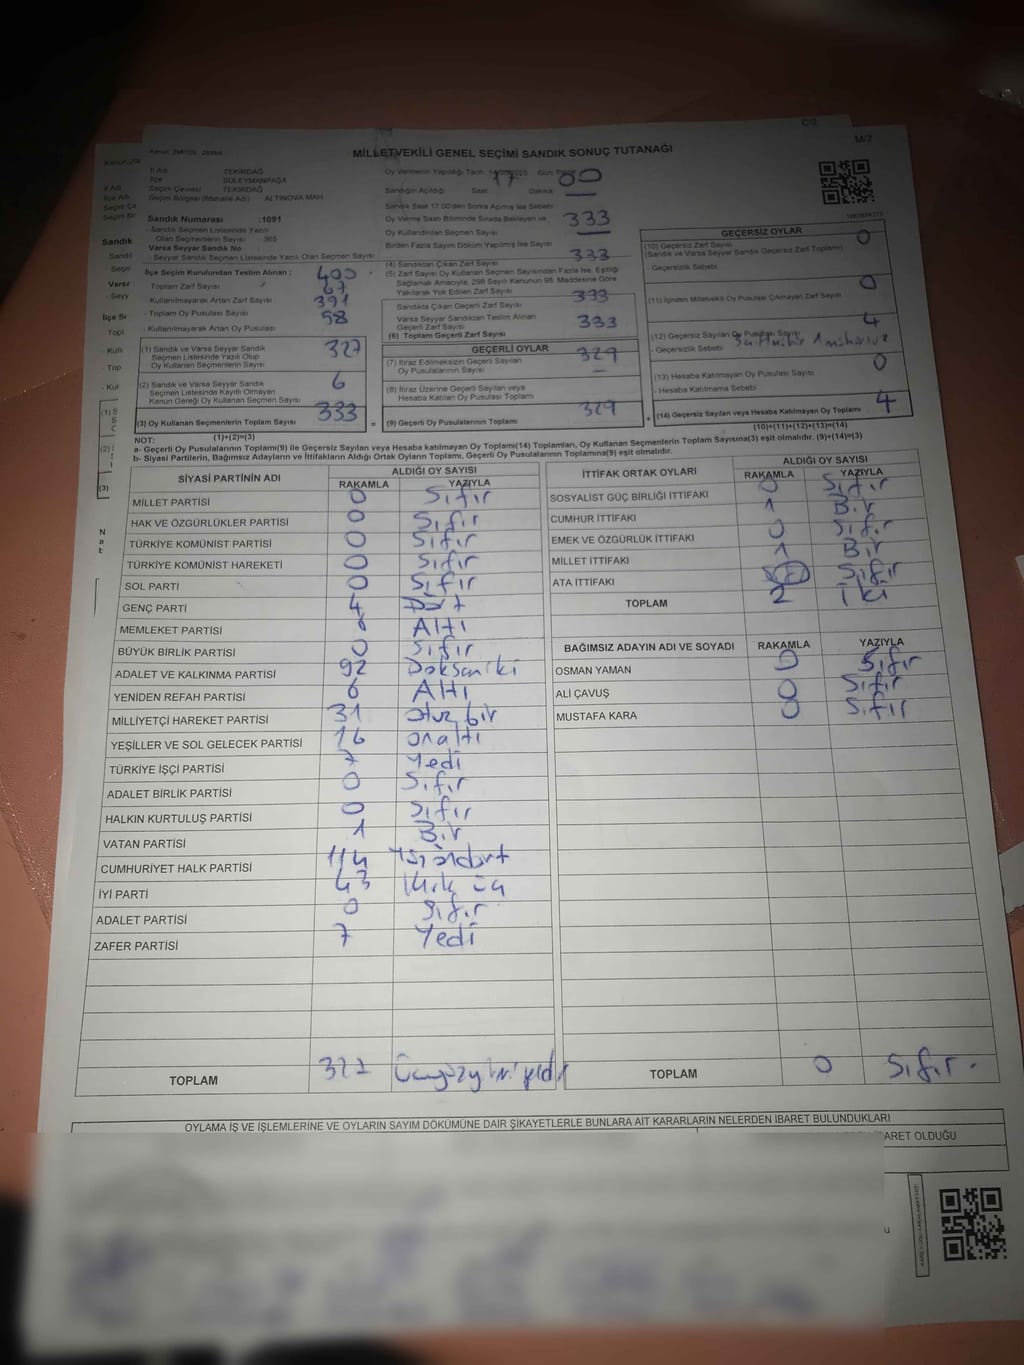 C/2
M/2
MİLLETVEKİLİ GENEL SEÇİMİ SANDIK SONUÇ TUTANAĞI
İl Adı TEKİRDAĞ
İlçe SÜLEYMANPAŞA
Seçim Çevresi TEKİRDAĞ
Seçim Bölgesi (Mahalle Adı) ALTINOVA MAH
Sandık Numarası :1091
Sandık Seçmen Listesinde Yazılı
Olan Seçmenlerin Sayısı 365
Varsa Seyyar Sandık No
Seyyar Sandık Seçmen Listesinde Yazılı Olan Seçmen Sayısı
İlçe Seçim Kurulundan Teslim Alınan ; 400
- Toplam Zarf Sayısı 67
- Kullanılmayarak Artan Zarf Sayısı 391
- Toplam Oy Pusulası Sayısı 58
- Kullanılmayarak Artan Oy Pusulası
(1) Sandık ve Varsa Seyyar Sandık
Seçmen Listesinde Yazılı Olup
Oy Kullanan Seçmenlerin Sayısı 327
(2) Sandık ve Varsa Seyyar Sandık
Seçmen Listesinde Kayıtlı Olmayan
Kanun Gereği Oy Kullanan Seçmen Sayısı 6
(3) Oy Kullanan Seçmenlerin Toplam Sayısı 333
(1)+(2)=(3)
Oy Vermenin Yapıldığı Tarih
Sandığın Açıldığı Saat 17 Dakika 00
Sandık Saat 17:00'den Sonra Açılmış İse Sebebi
Oy Verme Saati Bitiminde Sırada Bekleyen ve
Oy Kullandırılan Seçmen Sayısı 333
Birden Fazla Sayım Döküm Yapılmış İse Sayısı
(4) Sandıktan Çıkan Zarf Sayısı 333
(5) Zarf Sayısı Oy Kullanan Seçmen Sayısından Fazla İse, Eşitliği
Sağlamak Amacıyla, 298 Sayılı Kanunun 98. Maddesine Göre
Yakılarak Yok Edilen Zarf Sayısı
Sandıkta Çıkan Geçerli Zarf Sayısı 333
Varsa Seyyar Sandıktan Teslim Alınan
Geçerli Zarf Sayısı
(6) Toplam Geçerli Zarf Sayısı 333
GEÇERLİ OYLAR
(7) İtiraz Edilmeksizin Geçerli Sayılan
Oy Pusulalarının Sayısı 329
(8) İtiraz Üzerine Geçerli Sayılan veya
Hesaba Katılan Oy Pusulası Toplamı —
(9) Geçerli Oy Pusulalarının Toplamı 329
GEÇERSİZ OYLAR
(10) Geçersiz Zarf Sayısı 0
(Sandık ve Varsa Seyyar Sandık Geçersiz Zarf Toplamı)
- Geçersizlik Sebebi
(11) İçinden Milletvekili Oy Pusulası Çıkmayan Zarf Sayısı 0
(12) Geçersiz Sayılan Oy Pusulası Sayısı 4
- Geçersizlik Sebebi
(13) Hesaba Katılmayan Oy Pusulası Sayısı 0
- Hesaba Katılmama Sebebi
(14) Geçersiz Sayılan veya Hesaba Katılmayan Oy Toplamı 4
(10)+(11)+(12)+(13)=(14)
NOT:
a- Geçerli Oy Pusulalarının Toplamı(9) ile Geçersiz Sayılan veya Hesaba katılmayan Oy Toplamı(14) Toplamları, Oy Kullanan Seçmenlerin Toplam Sayısına(3) eşit olmalıdır. (9)+(14)=(3)
b- Siyasi Partilerin, Bağımsız Adayların ve İttifakların Aldığı Ortak Oyların Toplamı, Geçerli Oy Pusulalarının Toplamına(9) eşit olmalıdır.
SİYASİ PARTİNİN ADI ALDIĞI OY SAYISI
RAKAMLA YAZIYLA
MİLLET PARTİSİ 0 Sıfır
HAK VE ÖZGÜRLÜKLER PARTİSİ 0 Sıfır
TÜRKİYE KOMÜNİST PARTİSİ 0 Sıfır
TÜRKİYE KOMÜNİST HAREKETİ 0 Sıfır
SOL PARTİ 0 Sıfır
GENÇ PARTİ 4 Dört
MEMLEKET PARTİSİ 6 Altı
BÜYÜK BİRLİK PARTİSİ 0 Sıfır
ADALET VE KALKINMA PARTİSİ 92 Doksan iki
YENİDEN REFAH PARTİSİ 6 Altı
MİLLİYETÇİ HAREKET PARTİSİ 31 otuz bir
YEŞİLLER VE SOL GELECEK PARTİSİ 16 onaltı
TÜRKİYE İŞÇİ PARTİSİ 7 Yedi
ADALET BİRLİK PARTİSİ 0 Sıfır
HALKIN KURTULUŞ PARTİSİ 0 Sıfır
VATAN PARTİSİ 1 Bir
CUMHURİYET HALK PARTİSİ 114 Yüzöndört
İYİ PARTİ 43 Kırk üç
ADALET PARTİSİ 0 Sıfır
ZAFER PARTİSİ 7 Yedi
TOPLAM 327 Üçyüzyirmiyedi
İTTİFAK ORTAK OYLARI ALDIĞI OY SAYISI
RAKAMLA YAZIYLA
SOSYALİST GÜÇ BİRLİĞİ İTTİFAKI 0 Sıfır
CUMHUR İTTİFAKI 1 Bir
EMEK VE ÖZGÜRLÜK İTTİFAKI 0 Sıfır
MİLLET İTTİFAKI 1 Bir
ATA İTTİFAKI Sıfır
TOPLAM 2 İki
BAĞIMSIZ ADAYIN ADI VE SOYADI RAKAMLA YAZIYLA
OSMAN YAMAN 0 Sıfır
ALİ ÇAVUŞ 0 Sıfır
MUSTAFA KARA 0 Sıfır
TOPLAM 0 Sıfır.
OYLAMA İŞ VE İŞLEMLERİNE VE OYLARIN SAYIM DÖKÜMÜNE DAİR ŞİKAYETLERLE BUNLARA AİT KARARLARIN NELERDEN İBARET BULUNDUKLARI
ARET OLDUĞU